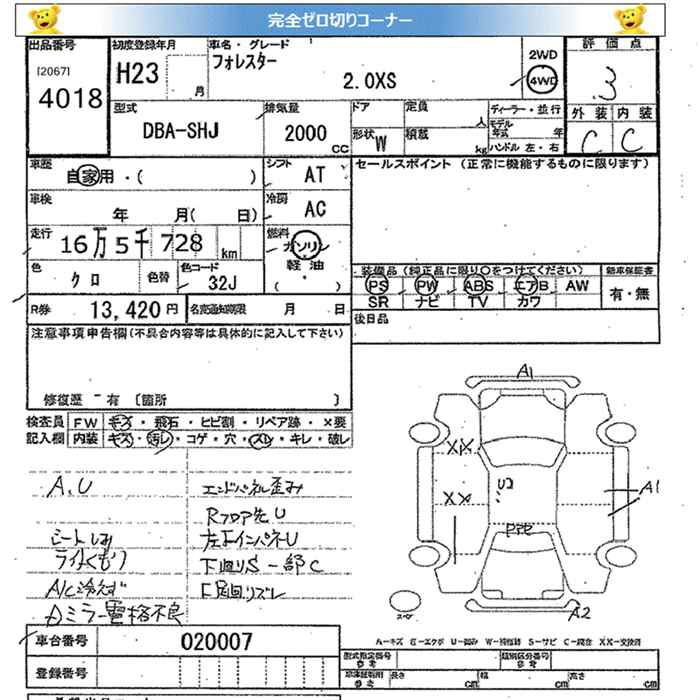 完全ゼロ切りコーナー
出品番号 初度登録年月 車名・グレード 2WD 評価点
[2067] H23 月 フォレスター 4WD 3
4018 2.0XS 外装 内装
型式 排気量 ドア 定員 人 ディーラー・並行 C C
DBA-SHJ 2000 CC 形状 W 積載 kg モデル年式 年 ハンドル 左・右
車歴 自家用・( ) シフト AT セールスポイント (正常に機能するものに限ります)
車検 年 月( 日) 冷房 AC
走行 16万5千728km 燃料 ガソリン
軽油
( )
色 クロ 色替 色コード 32J 装備品(純品に限り○をつけてください) 新車保証書
PS PW ABS エアB AW 有・無
SR ナビ TV カワ
R券 13,420円 名変通知期限 月 日 後日品
注意事項申告欄(不具合内容等は具体的に記入して下さい)
修復歴 - 有 [箇所 ]
検査員 FW キズ・飛石・ヒビ割・リペア跡・×要
記入欄 内装 キズ・汚レ・コゲ・穴・スレ・キレ・破レ
A,U エンドパネル歪み
Rフロア先U
シートしみ 左サイドインパネU
ライトくもり 下回りS一部C
A/C冷えず
Dミラー電格不良
A1
XX
XX
A1
A2
A-キズ E-エクボ U-凹み W-補修跡 S-サビ C-腐食 XX-交換済
車台番号 020007
登録番号
型式指定番号 参考 類別区分番号 参考
長さ cm 幅 cm 高さ cm